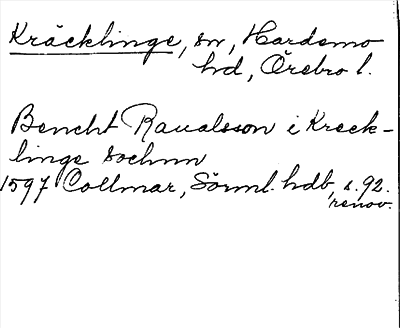 Kräcklinge, sn, Hardemo
hd, Örebro l.
Bencht Raualsson i Kreck-
linge sochnn
1597 Collmar, Sörml. hdb, s. 92.
renov.